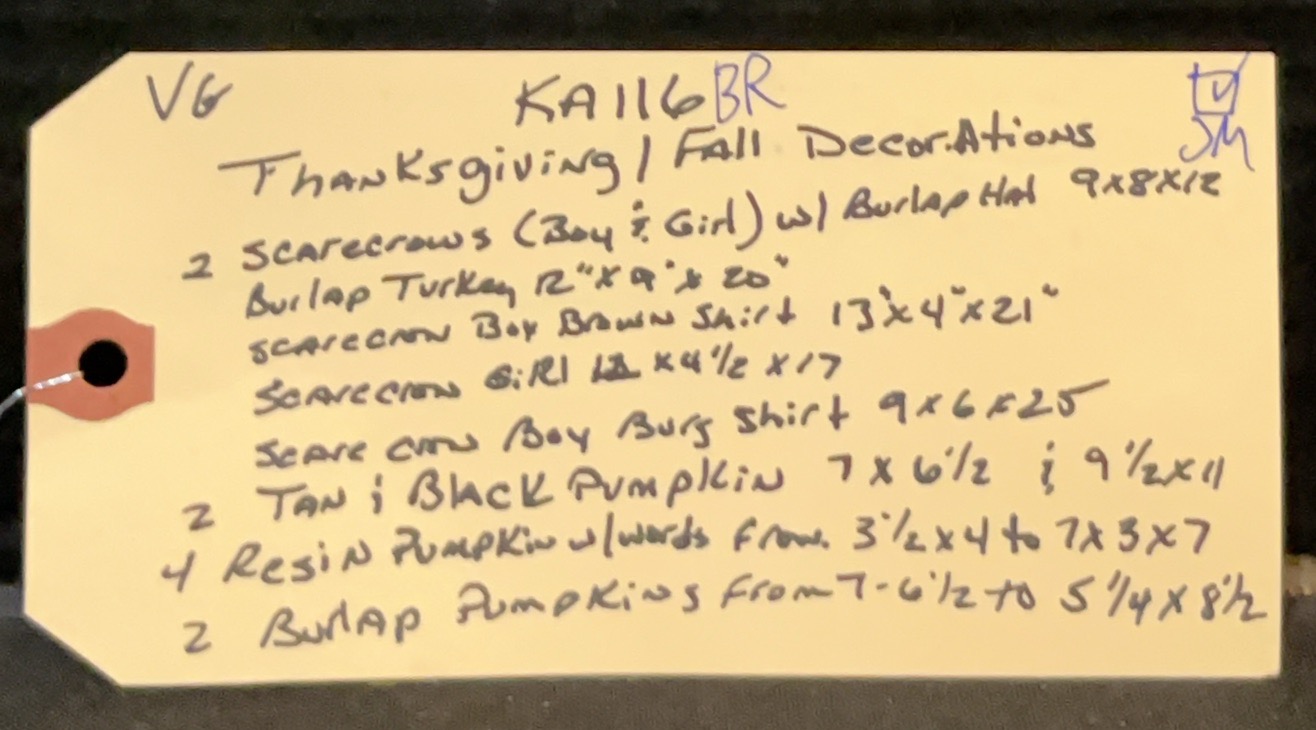 VG KA116 BR ☑
JM
Thanksgiving / Fall Decorations
2 Scarecrows (Boy & Girl) w/ Burlap Hat 9x8x12
Burlap Turkey 12" x 9" x 20"
Scarecrow Boy Brown Shirt 13" x 4" x 21"
Scarecrow Girl x 4 1/2 x 17
Scare crow Boy Burg Shirt 9 x 6 x 25
2 Tan & Black Pumpkin 7 x 6 1/2 & 9 1/2 x 11
4 Resin Pumpkin w/words from 3 1/2 x 4 to 7 x 3 x 7
2 Burlap Pumpkins from 7 - 6 1/2 to 5 1/4 x 8 1/2